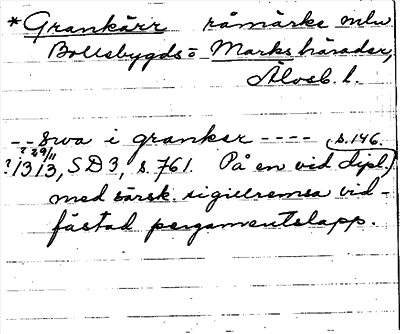 *Grankärr råmärke mlu
Bollebygds= Marks härader,
Älvsb. l.
-- swa i granker ---- s. 146.
? ? 29/11
? 1313, SD3, s. 761. På en vid dipl.
med särsk. sigillremsa vid-
fästad pergamentslapp.